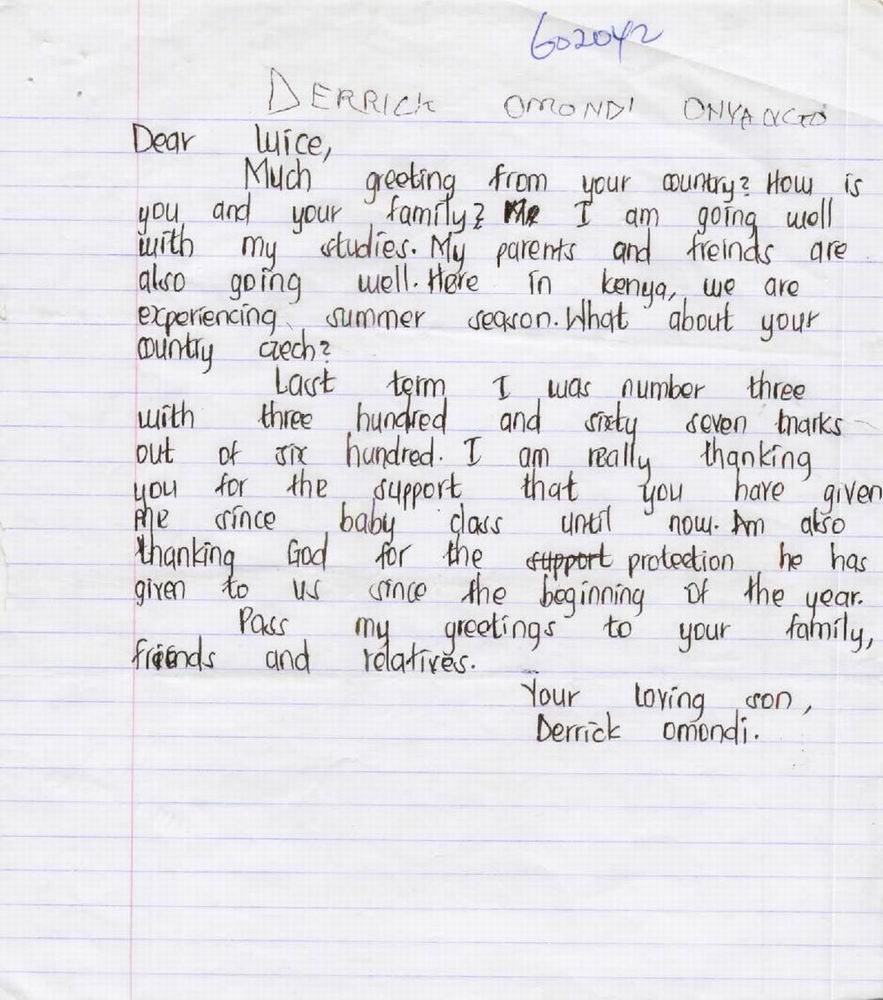 602042
DERRICK OMONDI ONYANGO
Dear luice,
Much greeting from your country? How is
you and your family? Me I am going well
with my studies. My parents and freinds are
also going well. Here in kenya, we are
experiencing summer season. What about your
country czech?
Last term I was number three
with three hundred and sixty seven marks
out of six hundred. I am really thanking
you for the support that you have given
me since baby class until now. Am also
thanking God for the support protection he has
given to us since the beginning of the year.
Pass my greetings to your family,
friends and relatives.
Your loving son,
Derrick omondi.